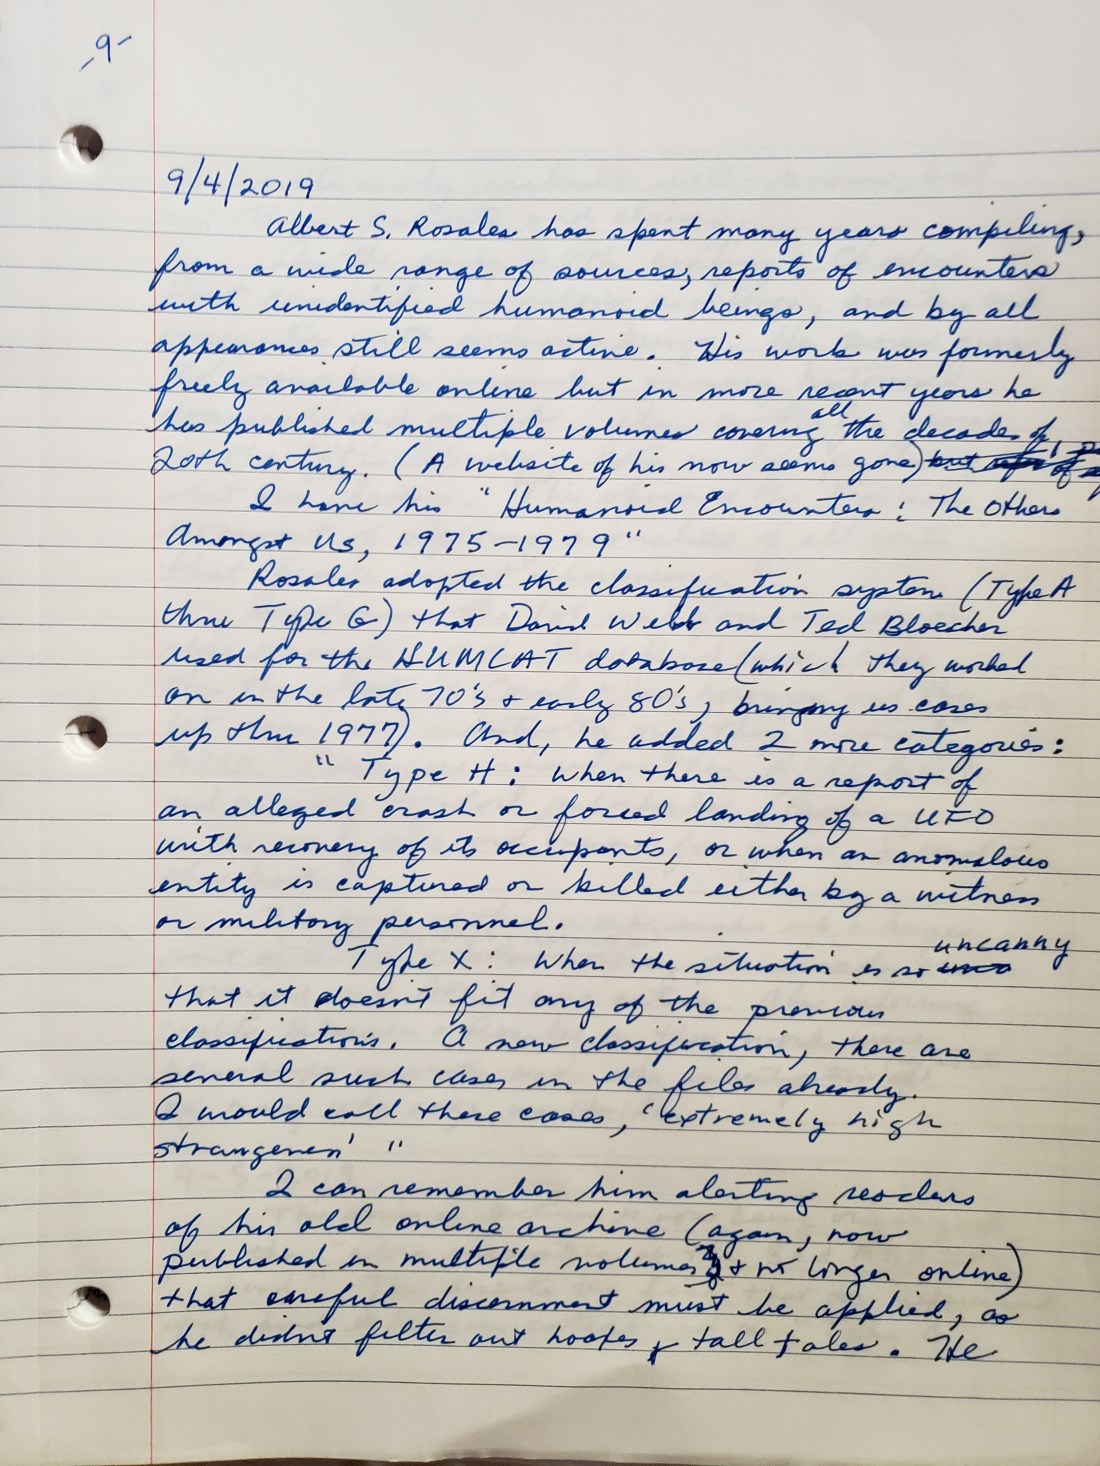 -9-
9/4/2019
Albert S. Rosales has spent many years compiling,
from a wide range of sources, reports of encounters
with unidentified humanoid beings, and by all
appearances still seems active. His work was formerly
freely available online but in more recent years he
has published multiple volumes covering all the decades of
20th century. (A website of his now seems gone)
I have his "Humanoid Encounters: The Others
Amongst Us, 1975-1979"
Rosales adopted the classification system (Type A
thru Type G) that David Webb and Ted Bloecher
used for the HUMCAT database (which they worked
on in the late 70's + early 80's, bringing us cases
up thru 1977). And, he added 2 more categories:
"Type H: When there is a report of
an alleged crash or forced landing of a UFO
with recovery of its occupants, or when an anomalous
entity is captured or killed either by a witness
or military personnel.
Type X: When the situation is so uncanny
that it doesn't fit any of the previous
classifications. A new classification, there are
several such cases in the files already.
I would call these cases, 'extremely high
strangeness' "
I can remember him alerting readers
of his old online archive (again, now
published in multiple volumes + no longer online)
that careful discernment must be applied, as
he didn't filter out hoaxes + tall tales. He